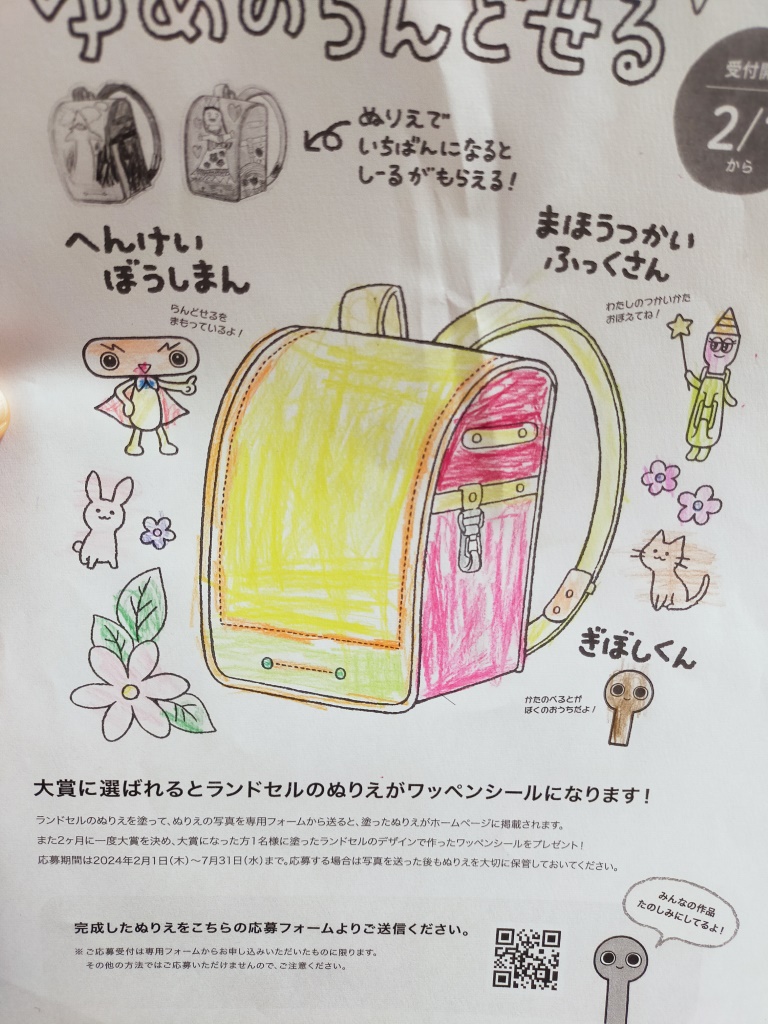 ゆめのらんどせる
受付開
2/1
から
ぬりえで
いちばんになると
しーるがもらえる!
へんけい
ぼうしまん
らんどせるを
まもっているよ!
まほうつかい
ふっくさん
わたしのつかいかた
おぼえてね!
ぎぼしくん
かたのべるとが
ぼくのおうちだよ!
大賞に選ばれるとランドセルのぬりえがワッペンシールになります!
ランドセルのぬりえを塗って、ぬりえの写真を専用フォームから送ると、塗ったぬりえがホームページに掲載されます。
また2ヶ月に一度大賞を決め、大賞になった方1名様に塗ったランドセルのデザインで作ったワッペンシールをプレゼント!
応募期間は2024年2月1日(木)〜7月31日(水)まで。応募する場合は写真を送った後もぬりえを大切に保管しておいてください。
みんなの作品
たのしみにしてるよ!
完成したぬりえをこちらの応募フォームよりご送信ください。
※ご応募受付は専用フォームからお申し込みいただいたものに限ります。
その他の方法ではご応募いただけませんので、ご注意ください。